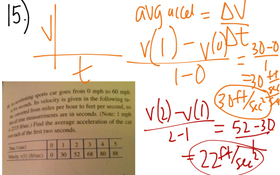 15.)
V
t
avg accel = ΔV
Δt
v(1) - v(0)
1-0
= 30-0
= 30 ft/sec
30 ft/sec²
v(2) - v(1)
2-1
= 52-30
1
= 22 ft/sec²
sports car goes from 0 mph to 60 mph
seconds. Its velocity is given in the following
converted from miles per hour to feet per second, so
time measurements are in seconds. (Note: 1 mph
Find the average acceleration of the car
each of the first two seconds.
0 1 2 3 4 5
0 30 52 68 80 88